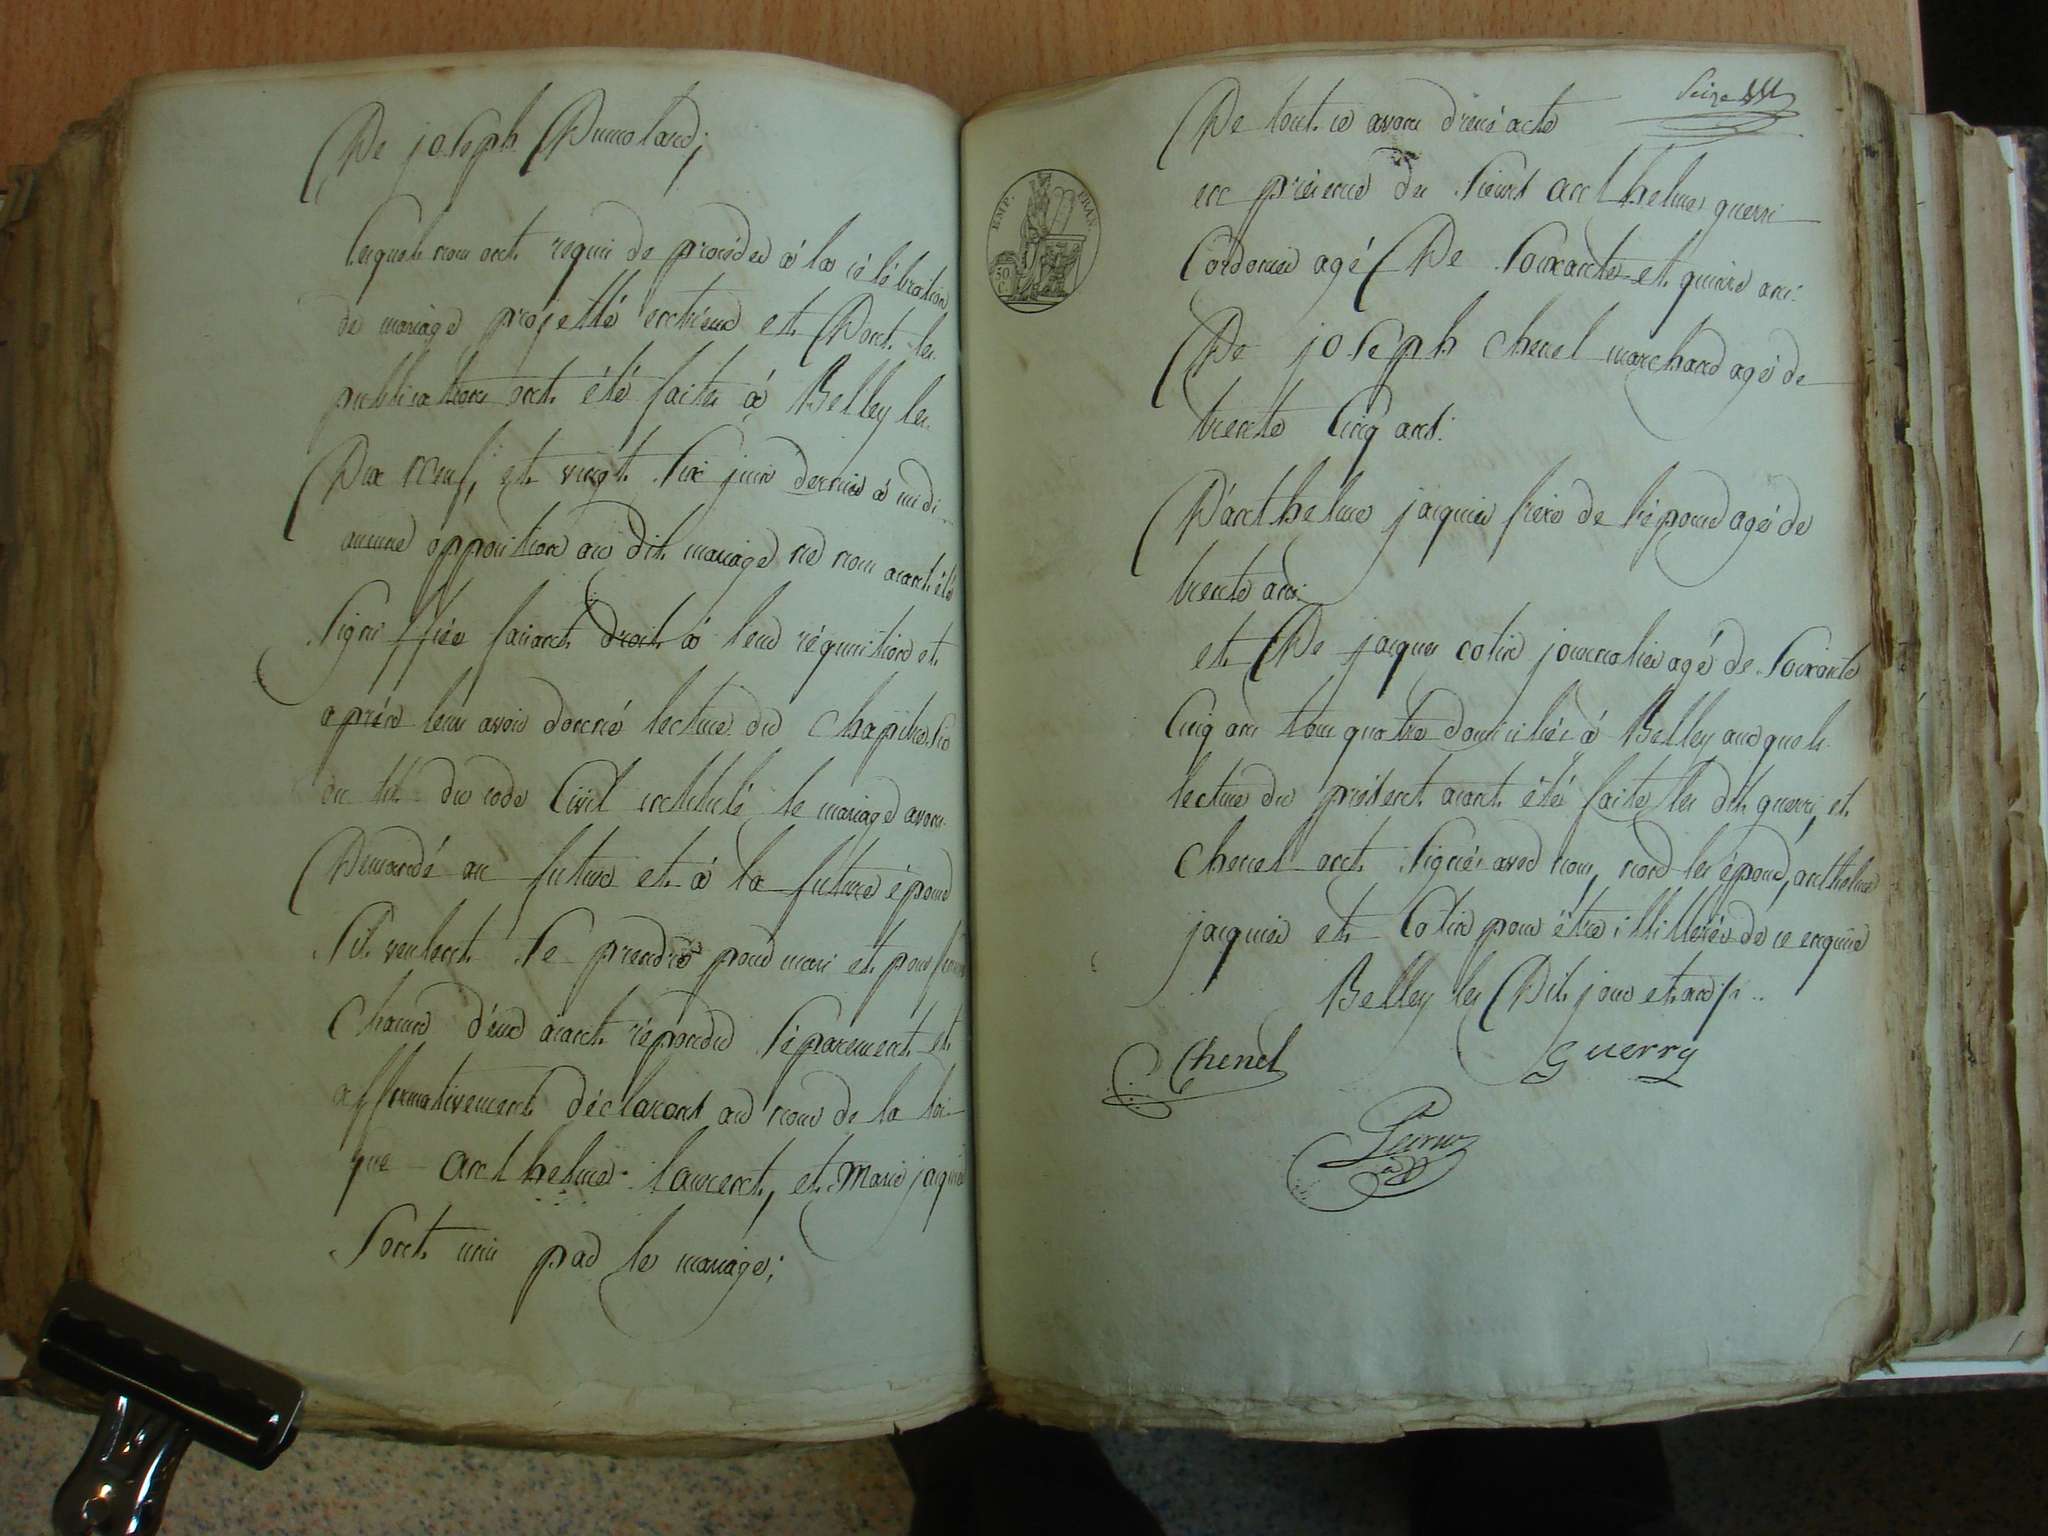 De joseph Dumolard;
lesquels nous ont requis de procéder à la célébration
de mariage projetté entrieux et Dont les
publications ont été faites à Belley les
Dix neuf, et vingt Six juin dernier à midi
aucune opposition au dit mariage ne nous aiant été
Signiffiée faisant droit à leur réquisition et
après leurs avoir donné lecture du Chapitre Six
du tit du code Civil intitulé le mariage avons
Demandé au futur et à la future épouse
S'il veulent Se prendre pour mari et pour femme
Chacun d'eux aiant répondu Séparement et
affirmativement déclarons au nom de la loi
que anthelme laurent, et Marie jaquier
Sont unis par le mariage;
Seize
De tout ce avons dressé acte
en présence du Sieurs anthelme guerri
Cordonier agé De Soixante et quinze ans.
De joseph chenel marchand agé de
trente Cinq ans.
D'anthelme jaquier frère de l'épouse agé de
trente ans
et De jaques cotin journalier agé de Soixante
Cinq ans tous quatre domiciliés à Belley auxquels
lecture du présent aiant été faite les dits guerri, et
chenel ont Signés avec nous, non les époux, anthelme
jaquier et Cotin pour être illitérés de ce enquis
Belley les Dit jour et an
Chenel
Guerry
EMP. FRAN.
50 C.